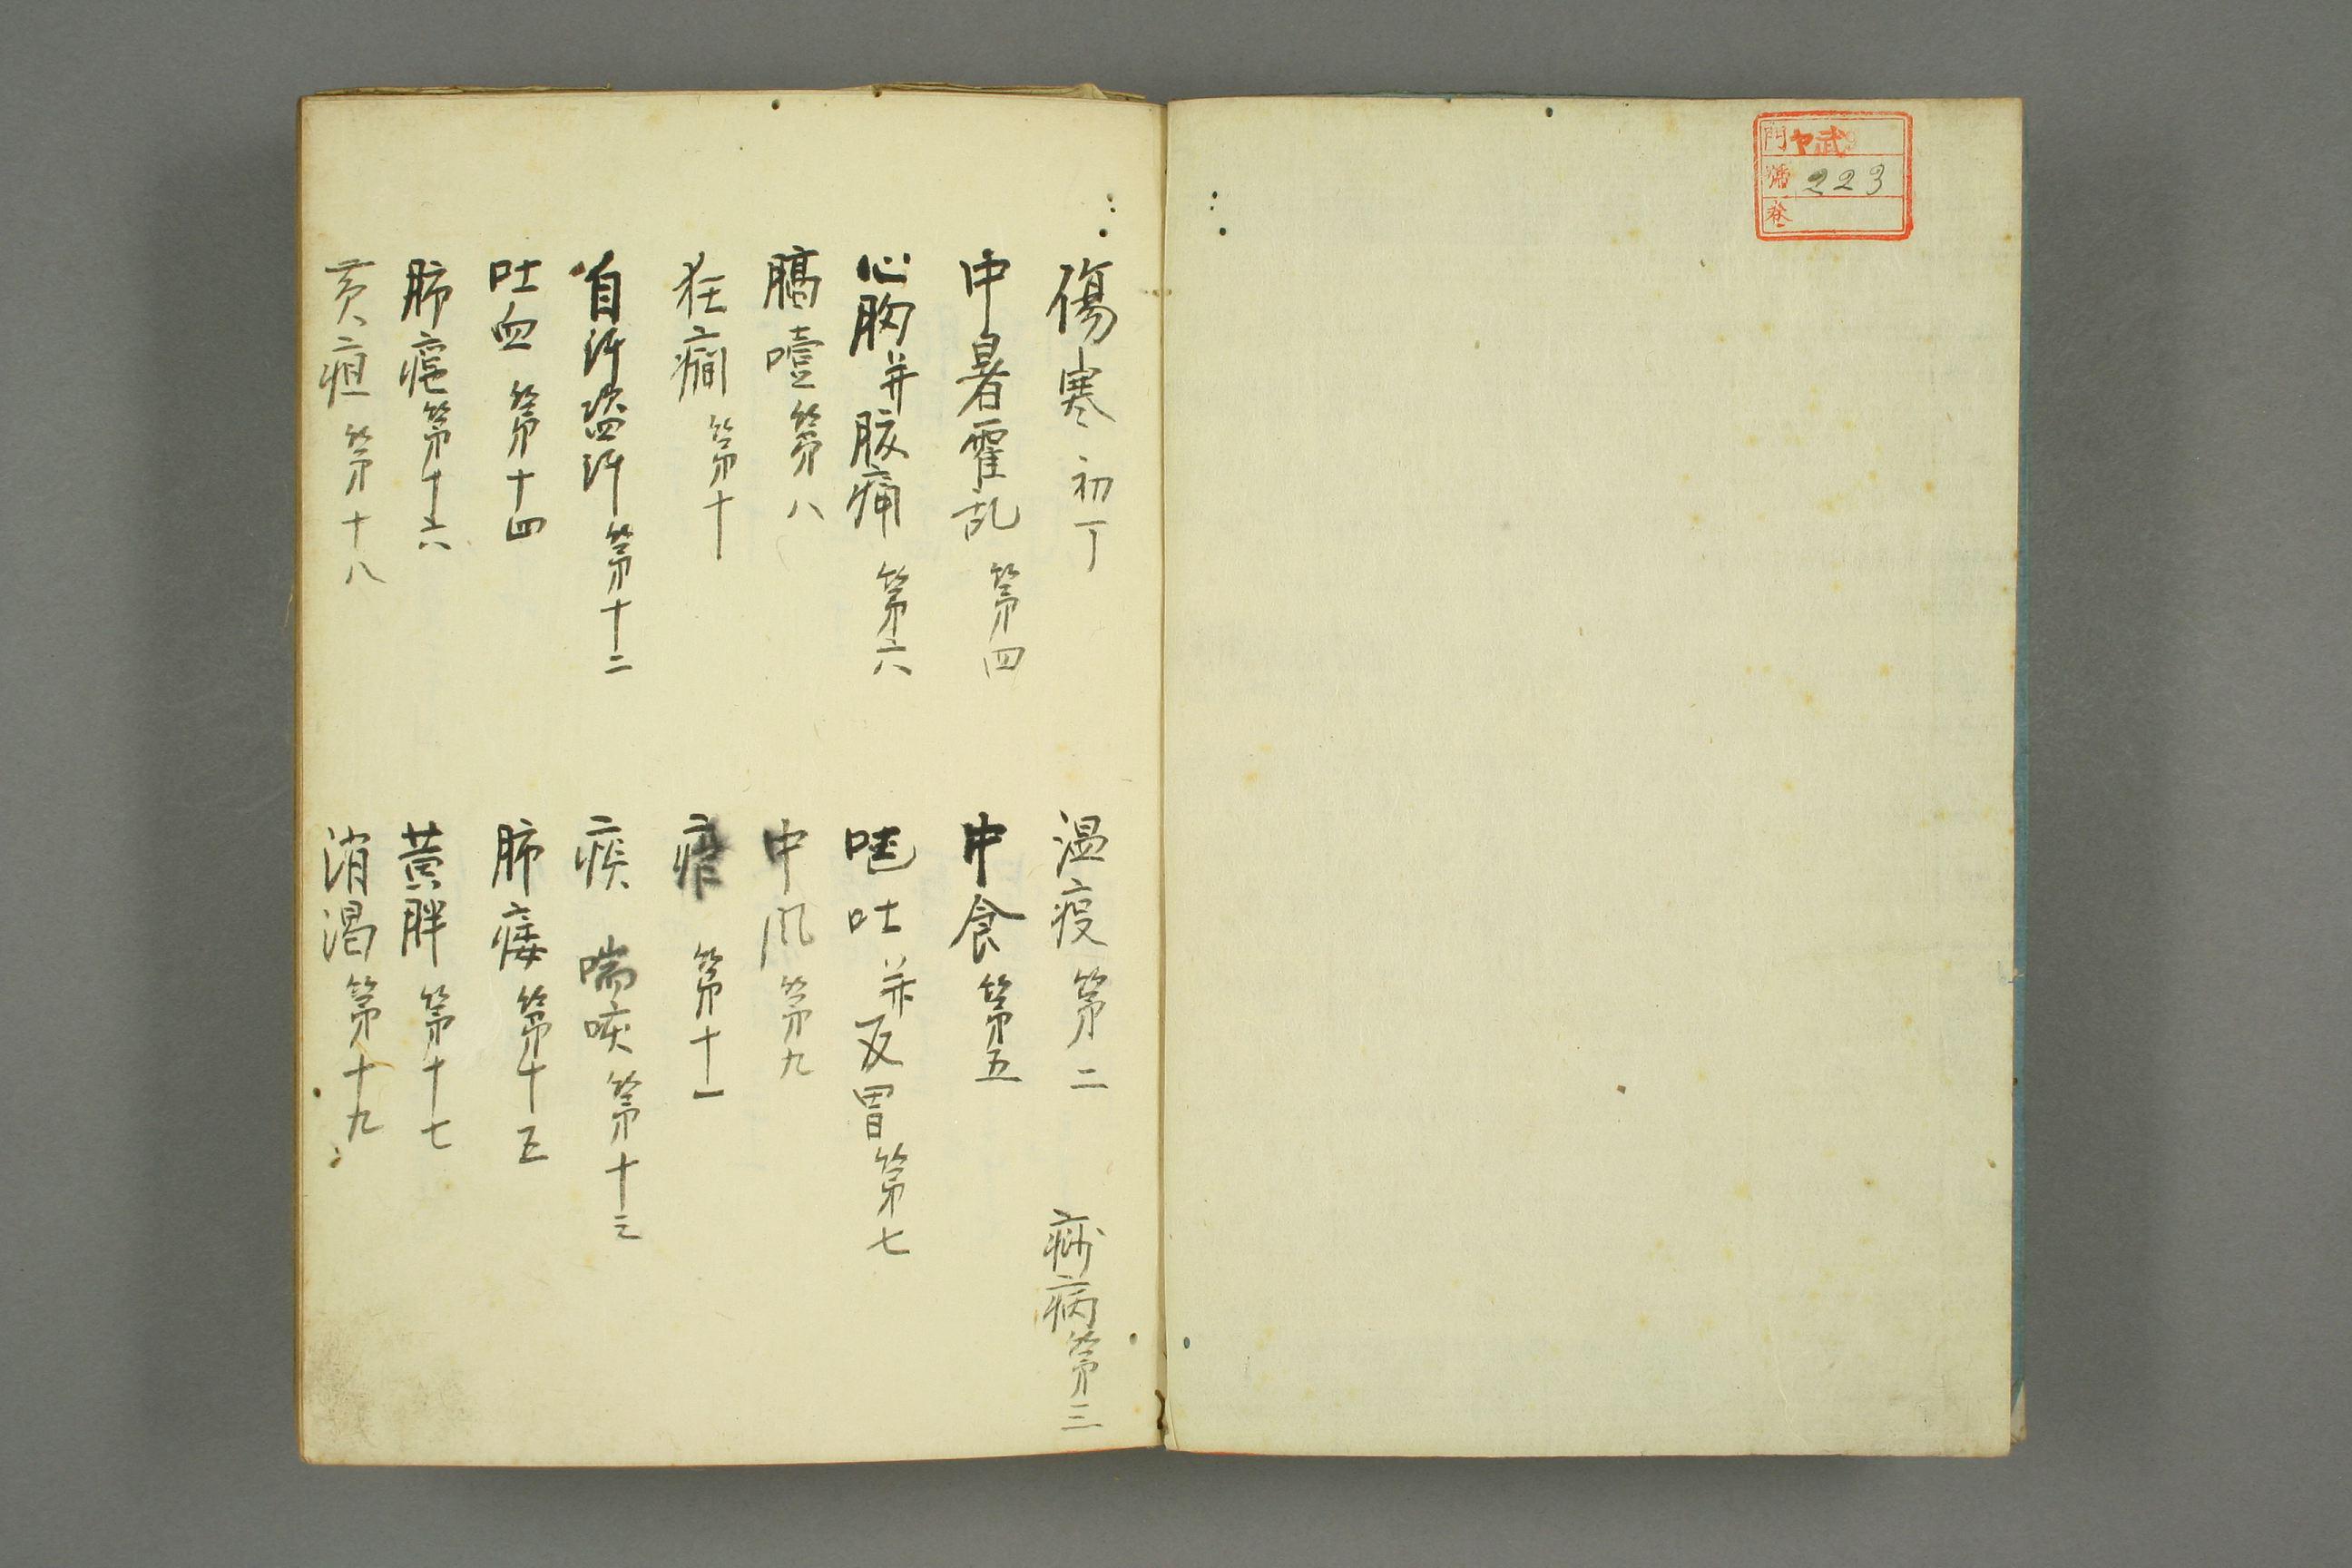 門 ヤ武
号 223
巻
傷寒 初丁
温疫 第二
痢病 第三
中暑霍乱 第四
中食 第五
心胸并腹痛 第六
嘔吐并反胃 第七
膈噎 第八
中風 第九
狂癇 第十
第十一
自汗盗汗 第十二
痰 喘咳 第十三
吐血 第十四
肺痿 第十五
肺疽 第十六
黄胖 第十七
黄疸 第十八
消渇 第十九